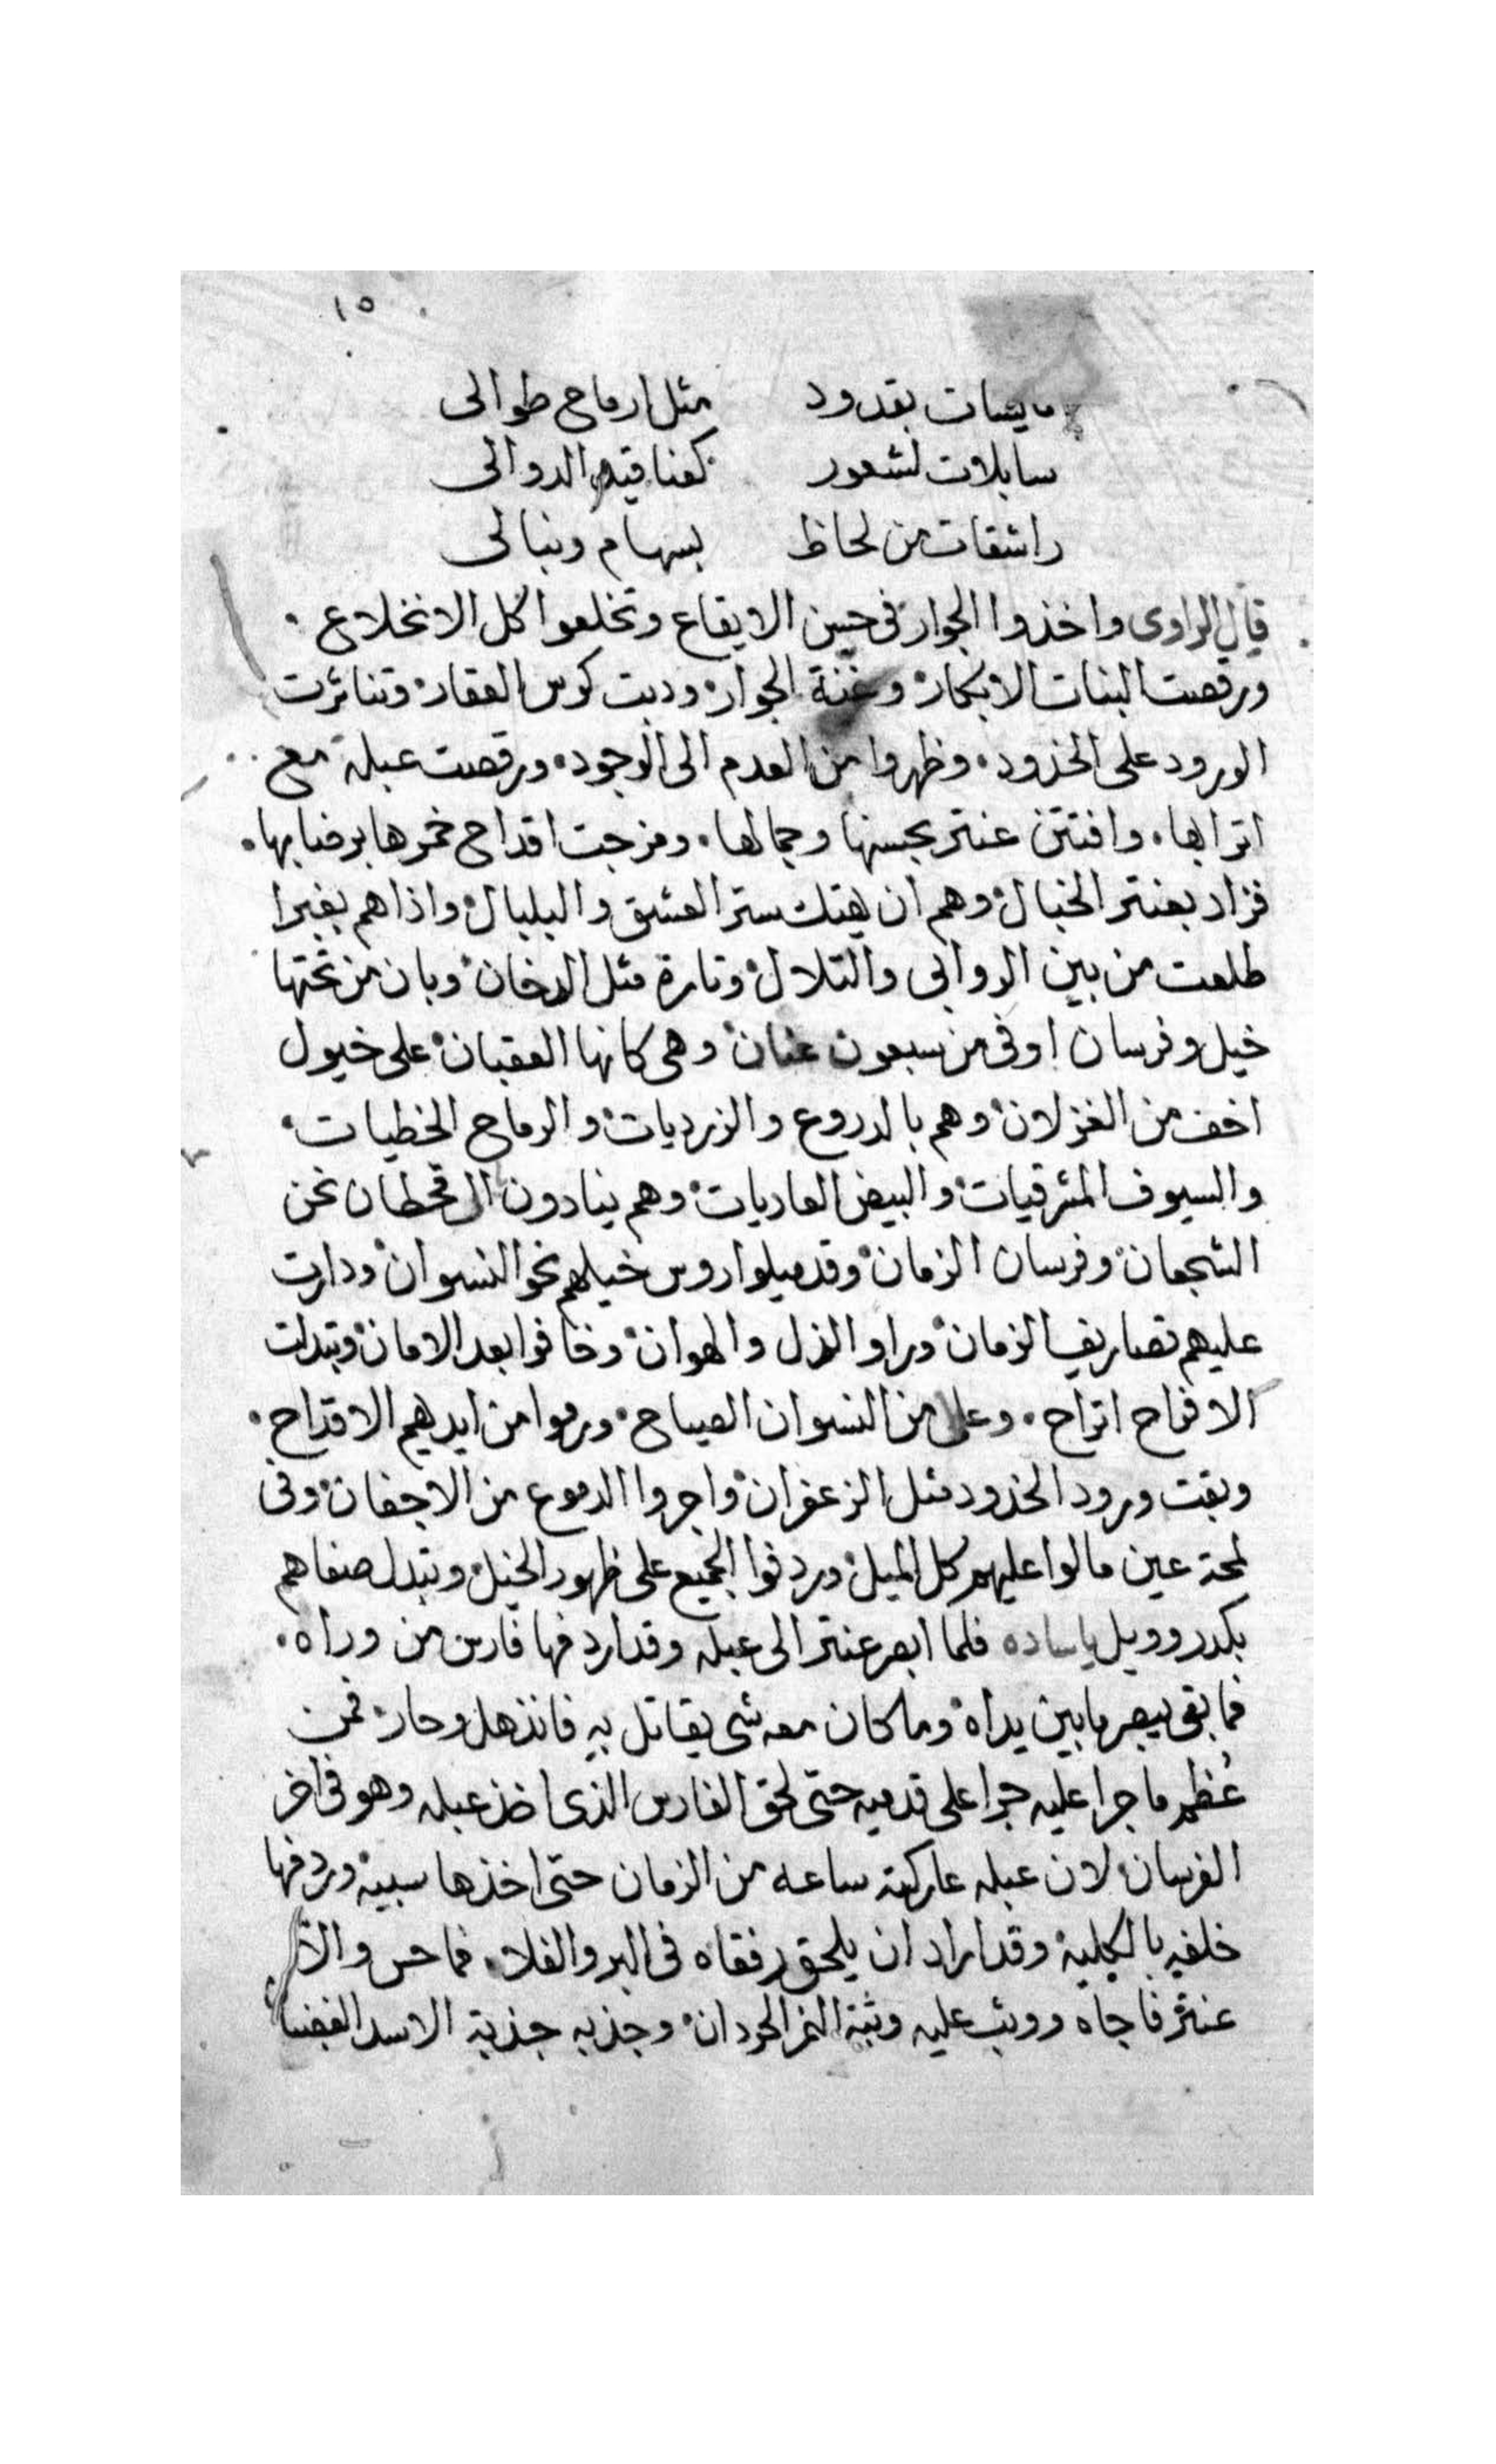 ١٥
مايسات بقدود مثل ارماح طوالى
سابلات لشعور كعناقيد الدوالى
راشقات من لحاظ بسهام ونبالى
قال الراوى واخذوا الجوار فى حسن الايقاع وتخلعوا كل الانخلاع
ورقصت البنات الابكار وغنة الجوار ودبت كوس العقار وتناثرت
الورود على الخدود وظهروا من العدم الى الوجود ورقصت عبلة مع
اترابها وافتتن عنتر بحسنها وجمالها ومزجت اقداح خمرها برضابها
فزاد بعنتر الخبال وهم ان يهتك ستر العشق والبلبال واذا هم بغبرا
طلعت من بين الروابى والتلال وتارة مثل الدخان وبان من تحتها
خيل وفرسان اوفى من سبعون عنان وهى كانها العقبان على خيول
اخف من الغزلان وهم بالدروع والزرديات والرماح الخطيات
والسيوف المشرقيات والبيض العاديات وهم ينادون ال قحطان نحن
الشجعان وفرسان الزمان وقد ميلوا روس خيلهم نحو النسوان ودارت
عليهم تصاريف الزمان وراوا الذل والهوان وخافوا بعد الامان وتبدلت
الافراح اتراح وعلا من النسوان الصياح ورموا من ايديهم الاقداح
وبقت ورود الخدود مثل الزعفران واجروا الدموع من الاجفان وفى
لمحة عين مالوا عليهم كل الميل وردفوا الجميع على ظهور الخيل وتبدل صفاهم
بكدر وويل ياساده فلما ابصر عنتر الى عبله وقد اردفها فارس من وراه
فما بقى يبصر ما بين يداه وما كان معه شى يقاتل به فانذهل وحار فمن
عُظم ما جرا عليه جرا على قدميه حتى لحق الفارس الذى اخذ عبله وهو فى اخر
الفرسان لان عبله عاركته ساعه من الزمان حتى اخذها سبيه وردفها
خلفه بالكلية وقد اراد ان يلحق رفقاه فى البر والفلا فما حس والا
عنتر فاجاه ووثب عليه وثبة النمر الحردان وجذبه جذبة الاسد الغضبان